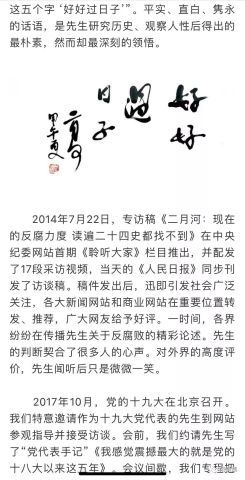 这五个字‘好好过日子’”。平实、直白、隽永
的话语，是先生研究历史、观察人性后得出的
最朴素，然而却最深刻的领悟。
好好
過
日子
2014年7月22日，专访稿《二月河：现在
的反腐力度 读遍二十四史都找不到》在中央
纪委网站首期《聆听大家》栏目推出，并配发
了17段采访视频，当天的《人民日报》同步刊
发了访谈稿。稿件发出后，迅即引发社会广泛
关注，各大新闻网站和商业网站在重要位置转
发、推荐，广大网友给予好评。一时间，各界
纷纷在传播先生关于反腐败的精彩论述。先生
的判断契合了很多人的心声。对外界的高度评
价，先生闻听后只是微微一笑。
2017年10月，党的十九大在北京召开。
我们特意邀请作为十九大党代表的先生到网站
参观指导并接受访谈。会前，我们约请先生写
了“党代表手记”《我感觉震撼最大的就是党的
十八大以来这五年》。会议间歇，我们专程把